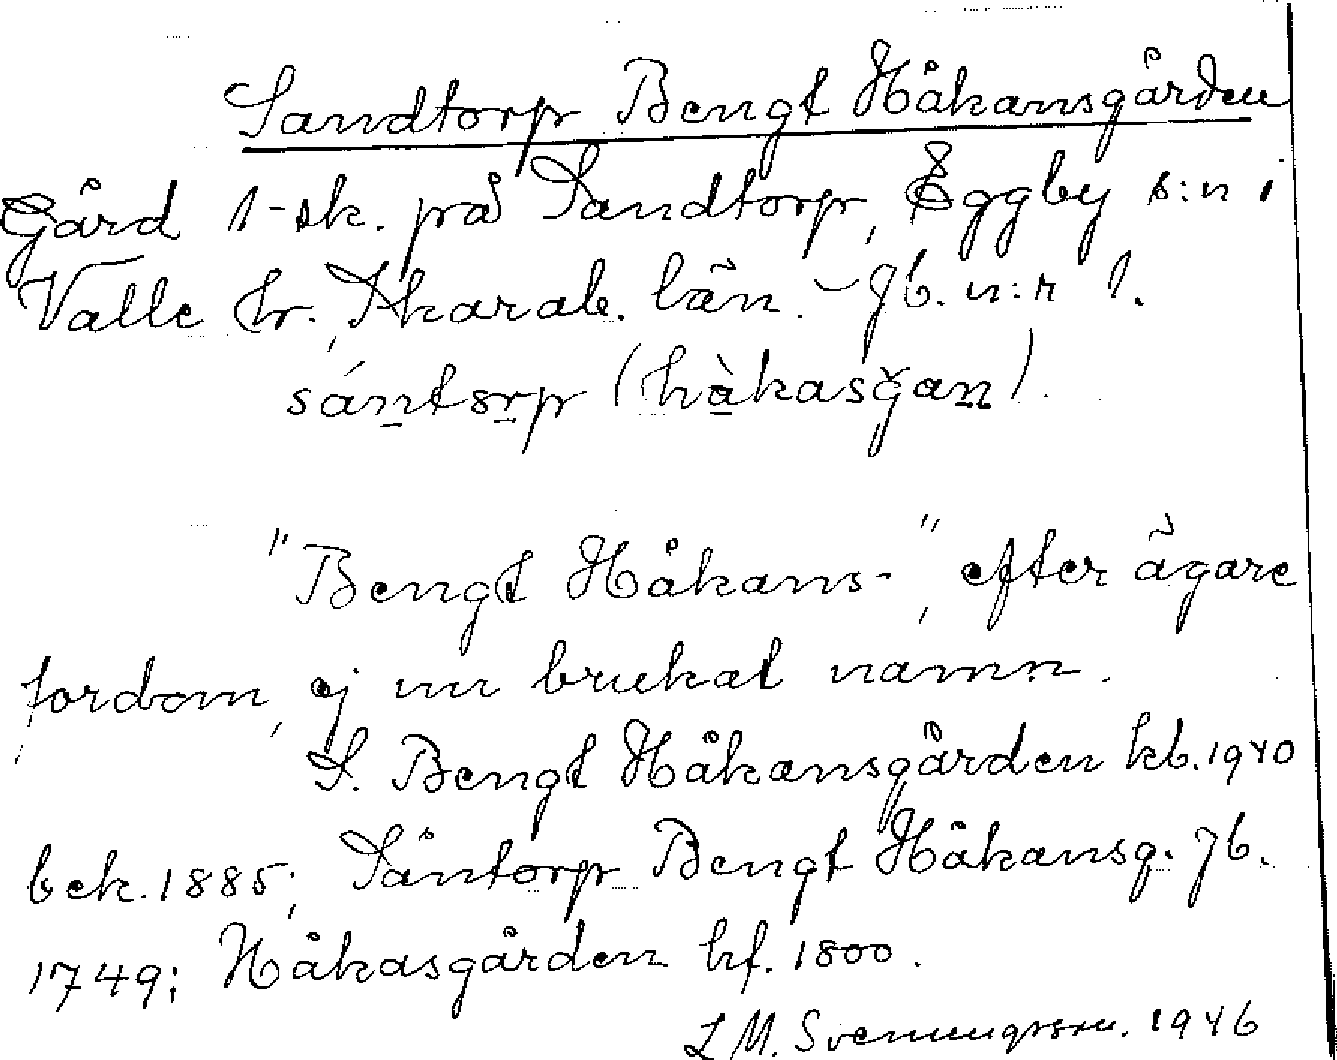 Sandtorp Bengt Håkansgården
Gård 1-sk. på Sandtorp, Eggby s:n i
Valle hr, Skarab. län. - Jb. n:r 1.
sántorp (hàkasgan).
"Bengt Håkans-", efter ägare
fordom, ej nu brukat namn.
S. Bengt Håkansgården kb. 1940
bek. 1885; Såntorp Bengt Håkansg. Jb.
1749; Håkasgården hf. 1800.
L M. Svenungsson. 1946